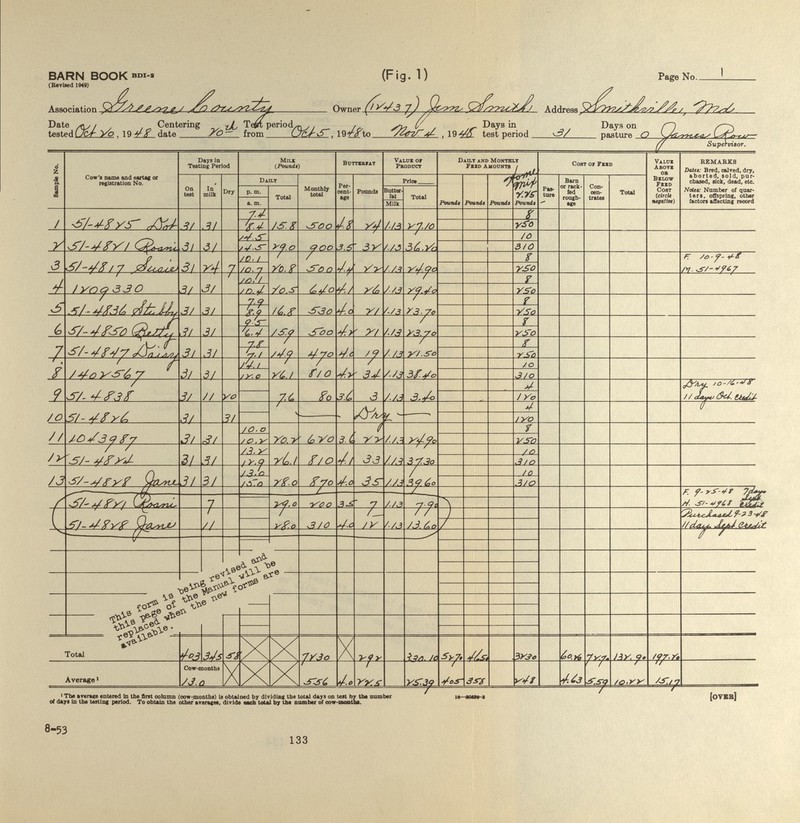 BARN BOOK BDI-2
(Fig. 1)
Page No. 1
(Revised 1949)
Association Greene County Owner (12437) Jim Smith Address Smithville, Md.
Date tested Oct 20, 1948 Centering date 20th Test period from Oct 5, 1948 to Nov 4, 1948 Days in test period 31 Days on pasture 0 James Row
Supervisor.
Sample No.
Cow's name and eartag or registration No.
Days in Testing Period
On test
In milk
Dry
Milk (Pounds)
Daily
p. m.
a. m.
Total
Monthly total
Butterfat
Percentage
Pounds
Value of Product
Price
Butterfat
Milk
Total
Daily and Monthly Feed Amounts
Home Mix
2.25
Pounds Pounds Pounds Pounds
Cost of Feed
Pasture
Barn or rack-fed roughage
Concentrates
Total
Value Above or Below Feed Cost (circle negative)
REMARKS
Dates: Bred, calved, dry, aborted, sold, purchased, sick, dead, etc.
Notes: Number of quarters, offspring, other factors affecting record
7.4 8
1 51-4825 Dot 31 31 8.4 15.8 500 4.8 24 1.13 27.10 250
14.5 10
2 51-4821 Roani 31 31 14.5 29.0 900 3.5 32 1.13 36.20 310
10.1 8 F. 10-9-48
3 51-4817 Susie 31 24 7 10.7 20.8 500 4.4 22 1.13 24.90 250 M. 51-4967
10.1 8
4 1209330 31 31 10.4 20.5 640 4.1 26 1.13 29.40 250
7.9 8
5 51-4836 Stubby 31 31 8.9 16.8 530 4.0 21 1.13 23.70 250
9.5 8
6 51-4850 Betty 31 31 6.4 15.9 500 4.2 21 1.13 23.70 250
7.8 8
7 51-4847 Daisy 31 31 7.1 14.9 470 4.0 19 1.13 21.50 250
14.1 10
8 1402567 31 31 12.0 26.1 810 4.2 34 1.13 38.40 310
4 Dry 10-16-48
9 51-4838 31 11 20 7.6 80 3.6 3 1.13 3.40 120 11 days Oct. Credit
4
10 51-4826 31 31 Dry 120
10.0 8
11 1043987 31 31 10.2 20.2 620 3.6 22 1.13 24.90 250
13.2 10
12 51-4824 31 31 12.9 26.1 810 4.1 33 1.13 37.30 310
13.0 10
13 51-4828 Jane 31 31 15.0 28.0 870 4.0 35 1.13 39.60 310
F. 9-25-48 7 days
51-4821 Roani 7 29.0 200 3.5 7 1.13 7.90 H. 51-4968 Sept. Credit
Purchased 9-23-48
51-4828 Jane 11 28.0 310 4.0 12 1.13 13.60 11 days Sept Credit
This form is being revised and
this page of the Manual will be
replaced when the new forms are
available.
Total 403 345 58 7230 292 330.10 5270 4650 3230 60.26 72.70 132.90 197.20
Cow-months
Average¹ 13.0 556 4.0 22.5 25.39 405 358 248 4.63 5.59 10.22 15.17
¹ The average entered in the first column (cow-months) is obtained by dividing the total days on test by the number
of days in the testing period. To obtain the other averages, divide each total by the number of cow-months.
[OVER]
8-53
133